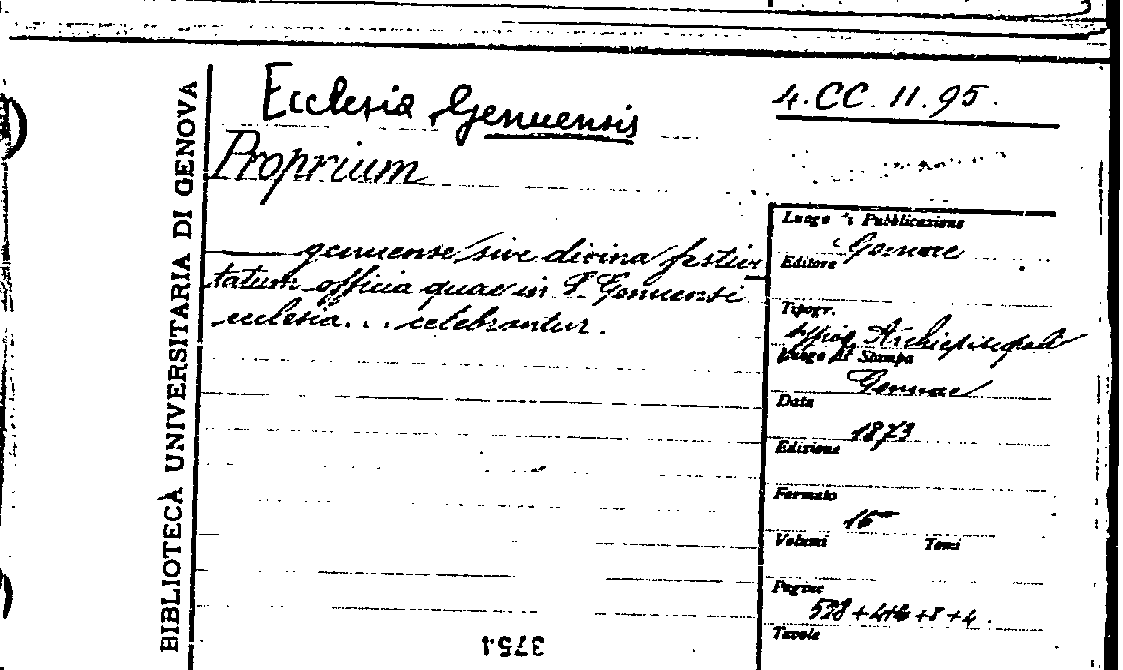 BIBLIOTECA UNIVERSITARIA DI GENOVA
Ecclesia Genuensis
4. CC. 11. 95.
Proprium
genuense sive divina festivi
tatum officia quae in S. Genuensi
ecclesia... celebrantur.
Luogo di Pubblicazione
Genuae
Editore
Tipogr.
typis Archiepiscopal
Luogo di Stampa
Genuae
Data
1873
Edizione
Formato
16
Volumi Tomi
Pagine
Tavole
3754